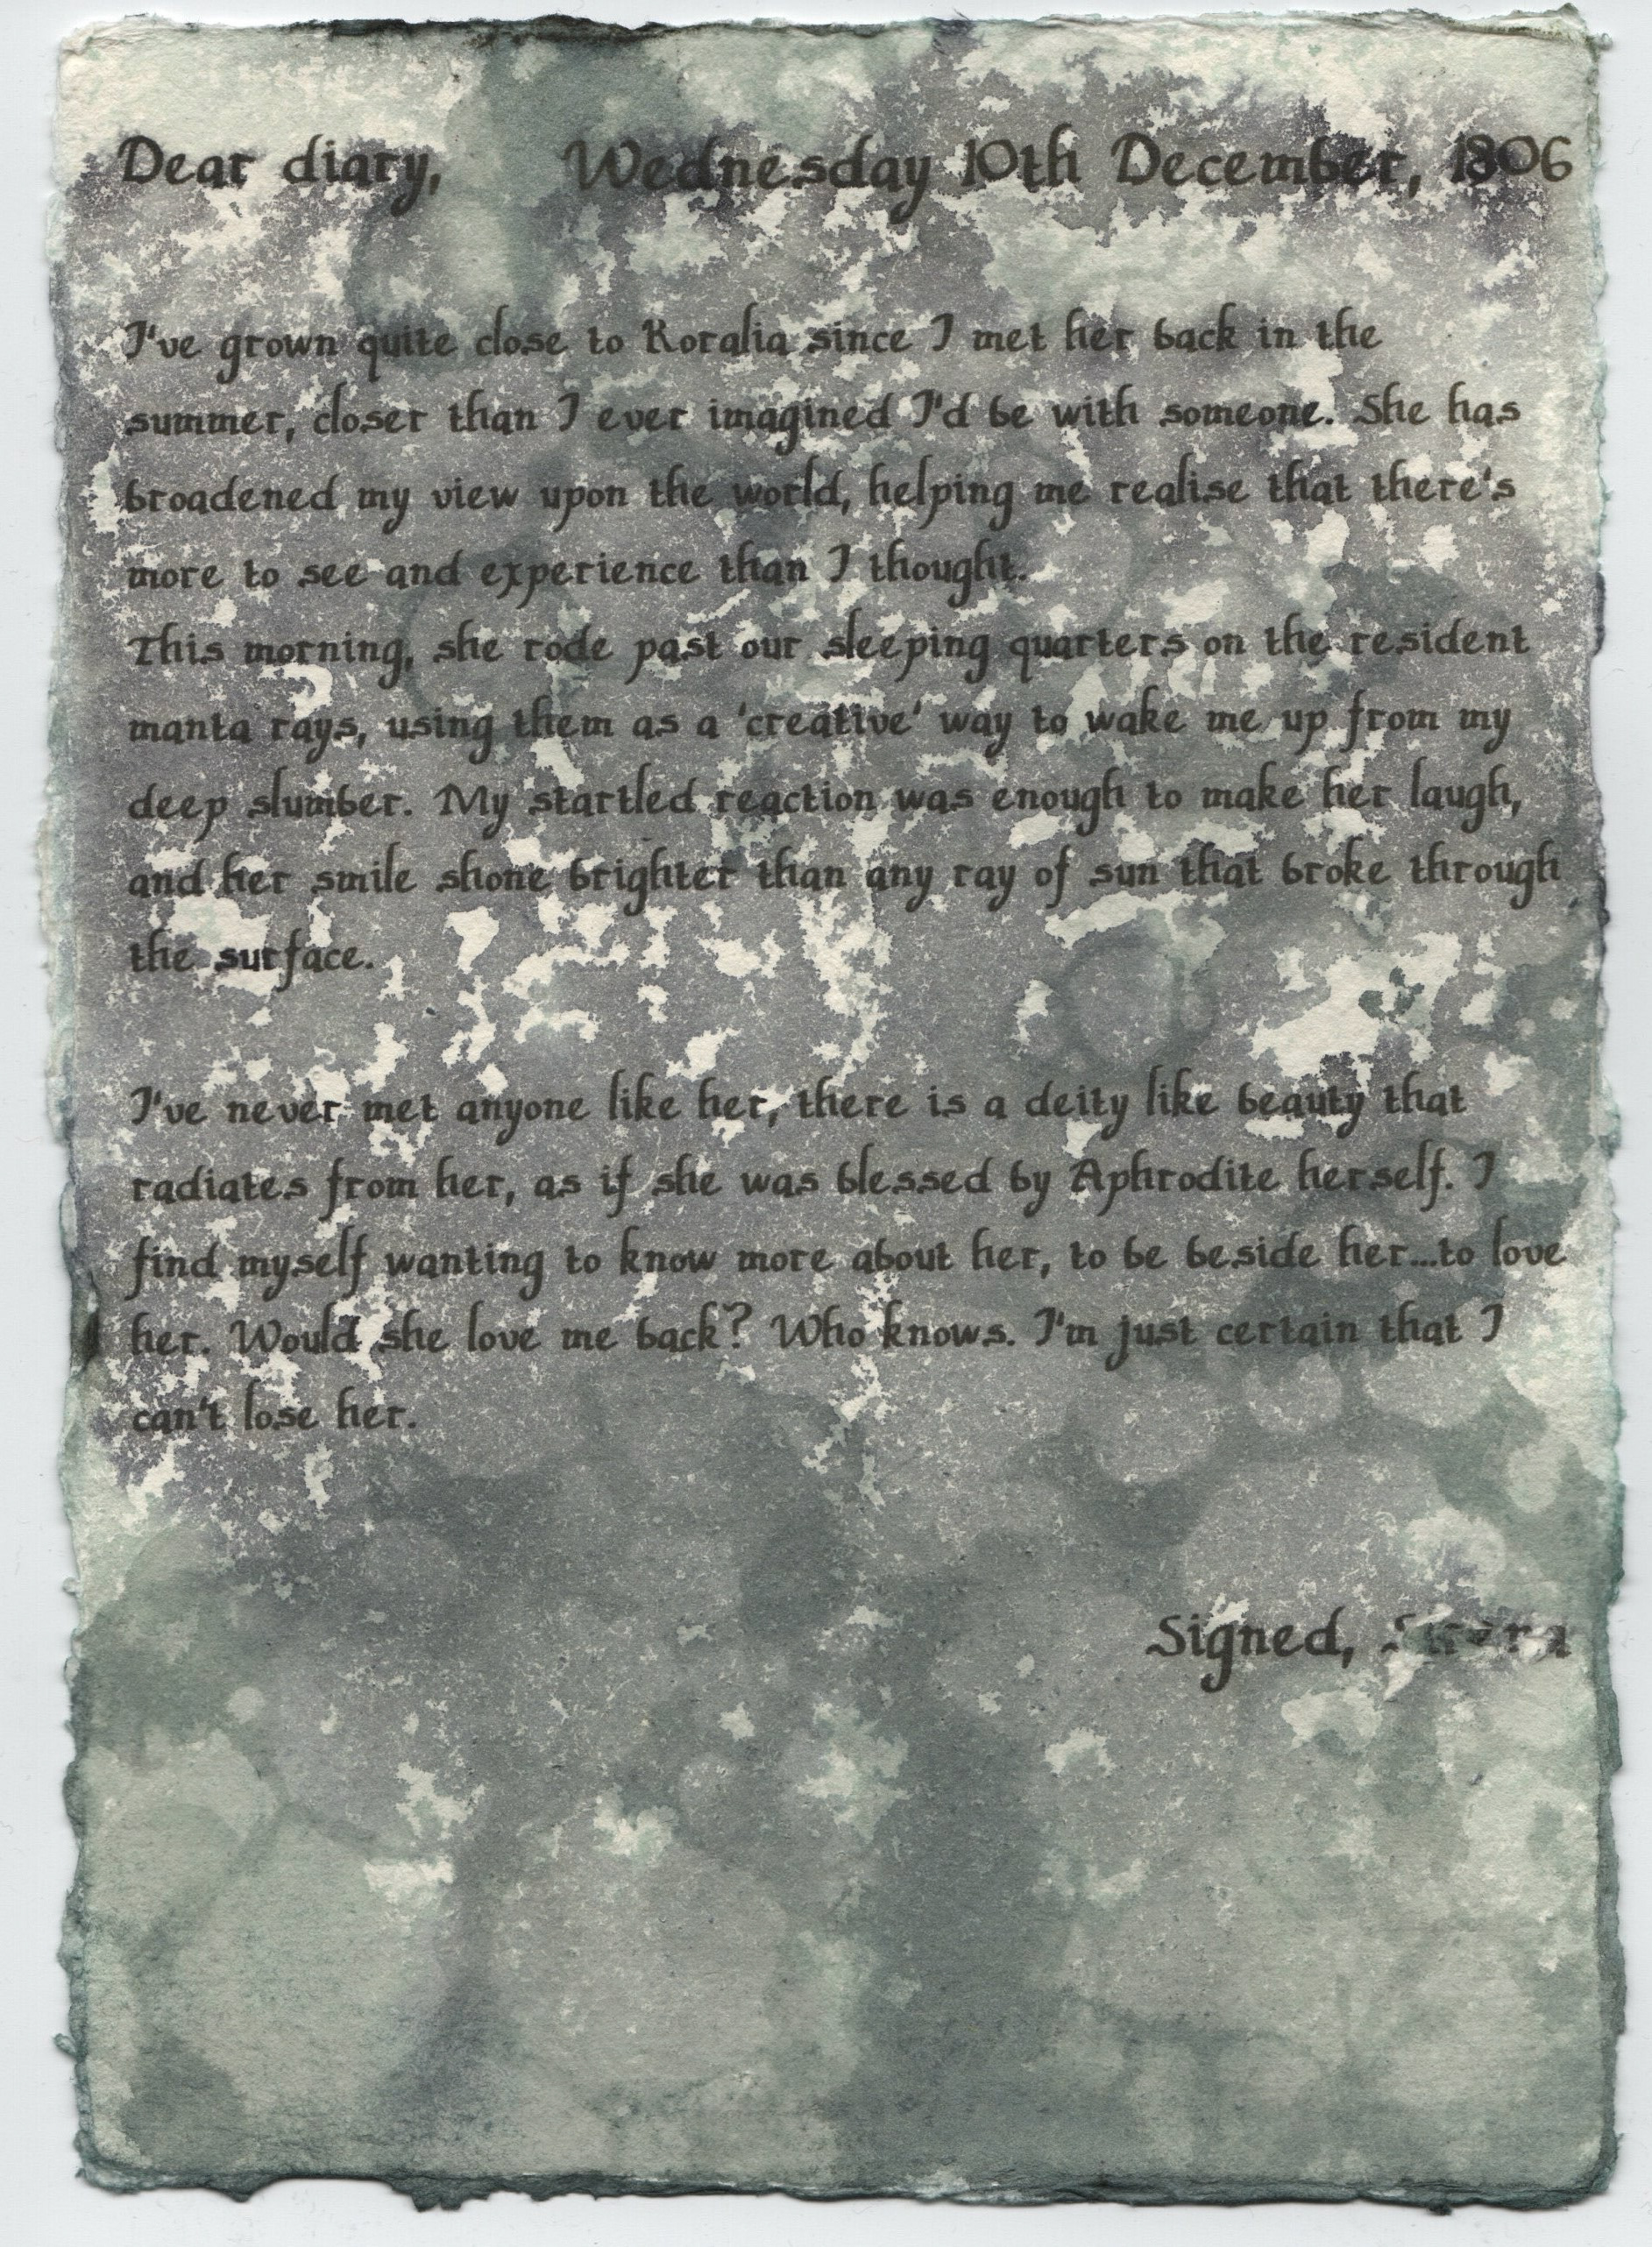 Dear diary, Wednesday 10th December, 1806
I've grown quite close to Koralia since I met her back in the
summer, closer than I ever imagined I'd be with someone. She has
broadened my view upon the world, helping me realise that there's
more to see and experience than I thought.
This morning, she rode past our sleeping quarters on the resident
manta rays, using them as a 'creative' way to wake me up from my
deep slumber. My startled reaction was enough to make her laugh,
and her smile shone brighter than any ray of sun that broke through
the surface.
I've never met anyone like her, there is a deity like beauty that
radiates from her, as if she was blessed by Aphrodite herself. I
find myself wanting to know more about her, to be beside her...to love
her. Would she love me back? Who knows. I'm just certain that I
can't lose her.
Signed,